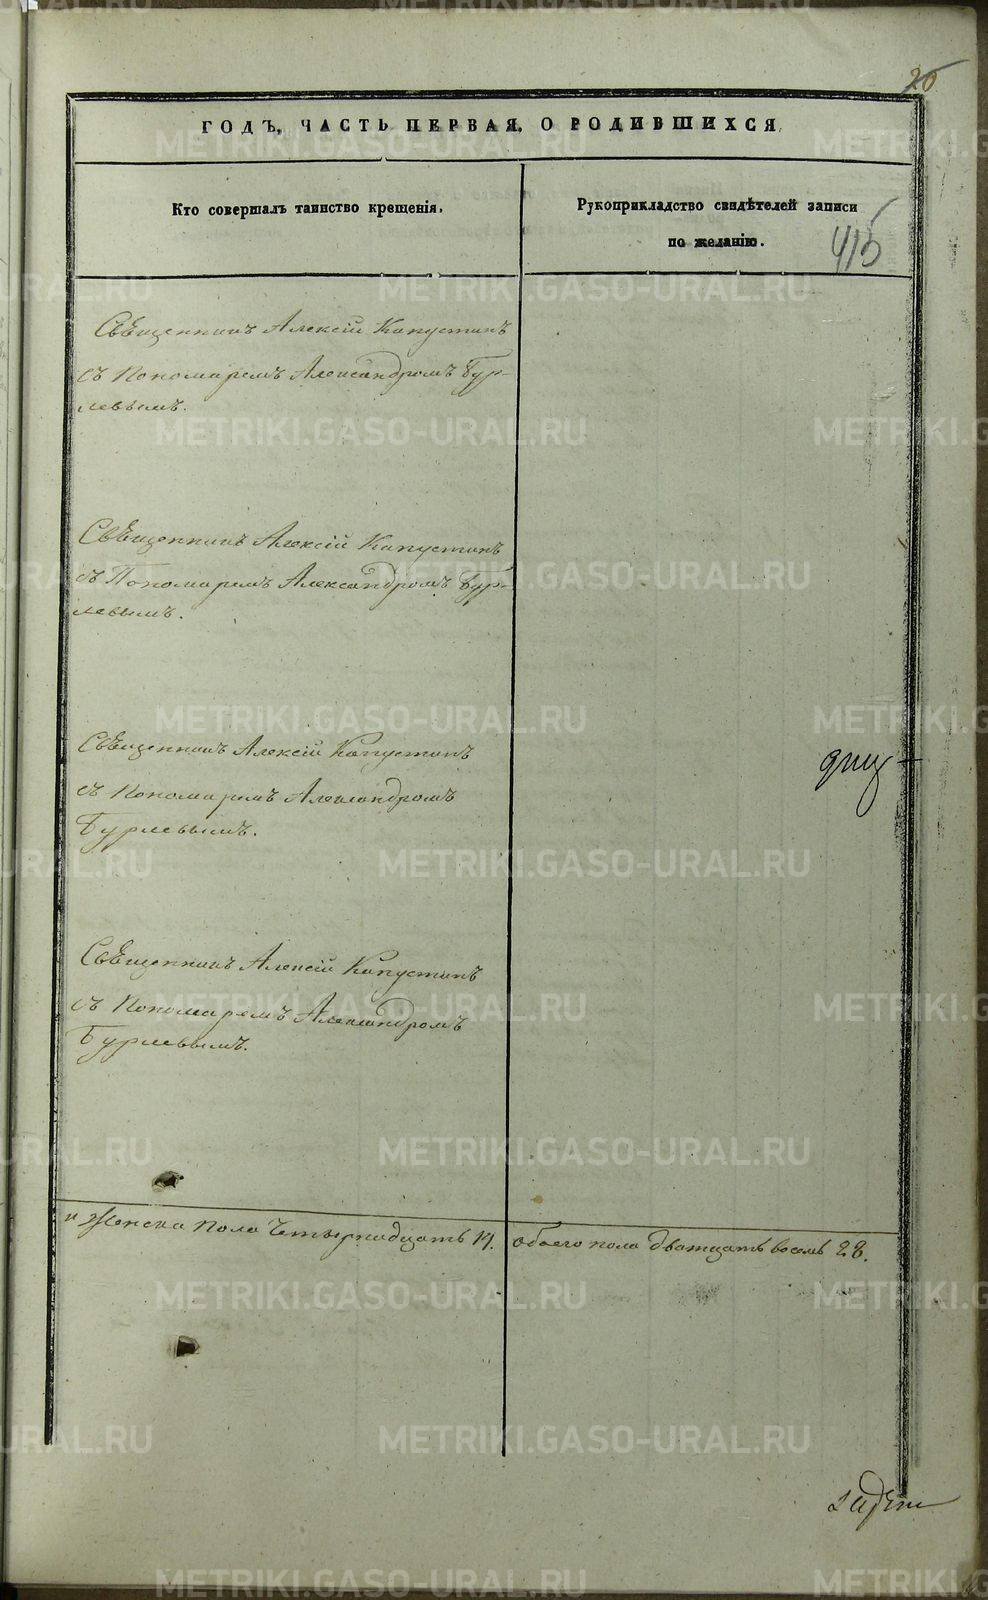 26
ГОДЪ, ЧАСТЬ ПЕРВАЯ, О РОДИВШИХСЯ.
Кто совершалъ таинство крещенія.
Рукоприкладство свидѣтелей записи
по желанію.
415
Священникъ Алексій Капустинъ
съ Пономаремъ Александромъ Бур-
левымъ.
Священникъ Алексій Капустинъ
съ Пономаремъ Александромъ Бур-
левымъ.
Священникъ Алексій Капустинъ
съ Пономаремъ Александромъ
Бурлевымъ.
Священникъ Алексій Капустинъ
съ Пономаремъ Александромъ
Бурлевымъ.
и Женска пола Четырнадцать 14. обоего пола дватцать восемь 28.
METRIKI.GASO-URAL.RU